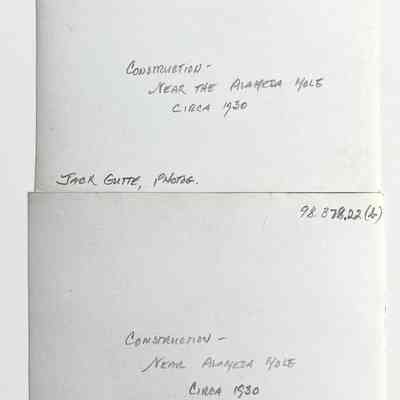 CONSTRUCTION -
NEAR THE ALAMEDA MOLE
CIRCA 1930
JACK GUTTE, PHOTOG.
98.878.22 (b)
CONSTRUCTION -
NEAR ALAMEDA MOLE
CIRCA 1930